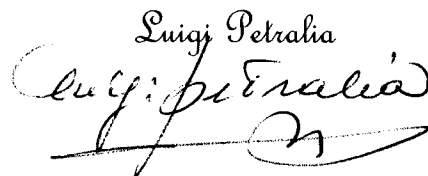 Luigi Petralia
Luigi Petralia